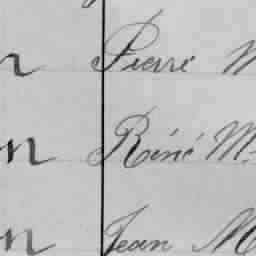 n Pierre M
m Réné M.
m Jean M